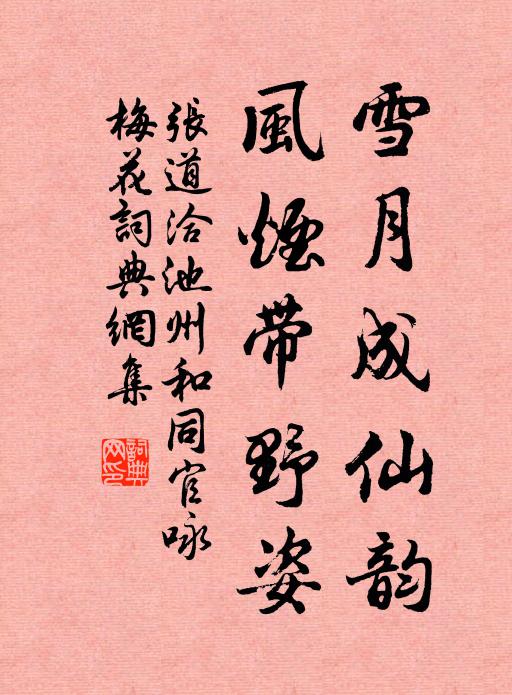 雪月成仙韵
風煙带野姿
張道洽池州和同官咏
梅花詞典網集
詞典网印